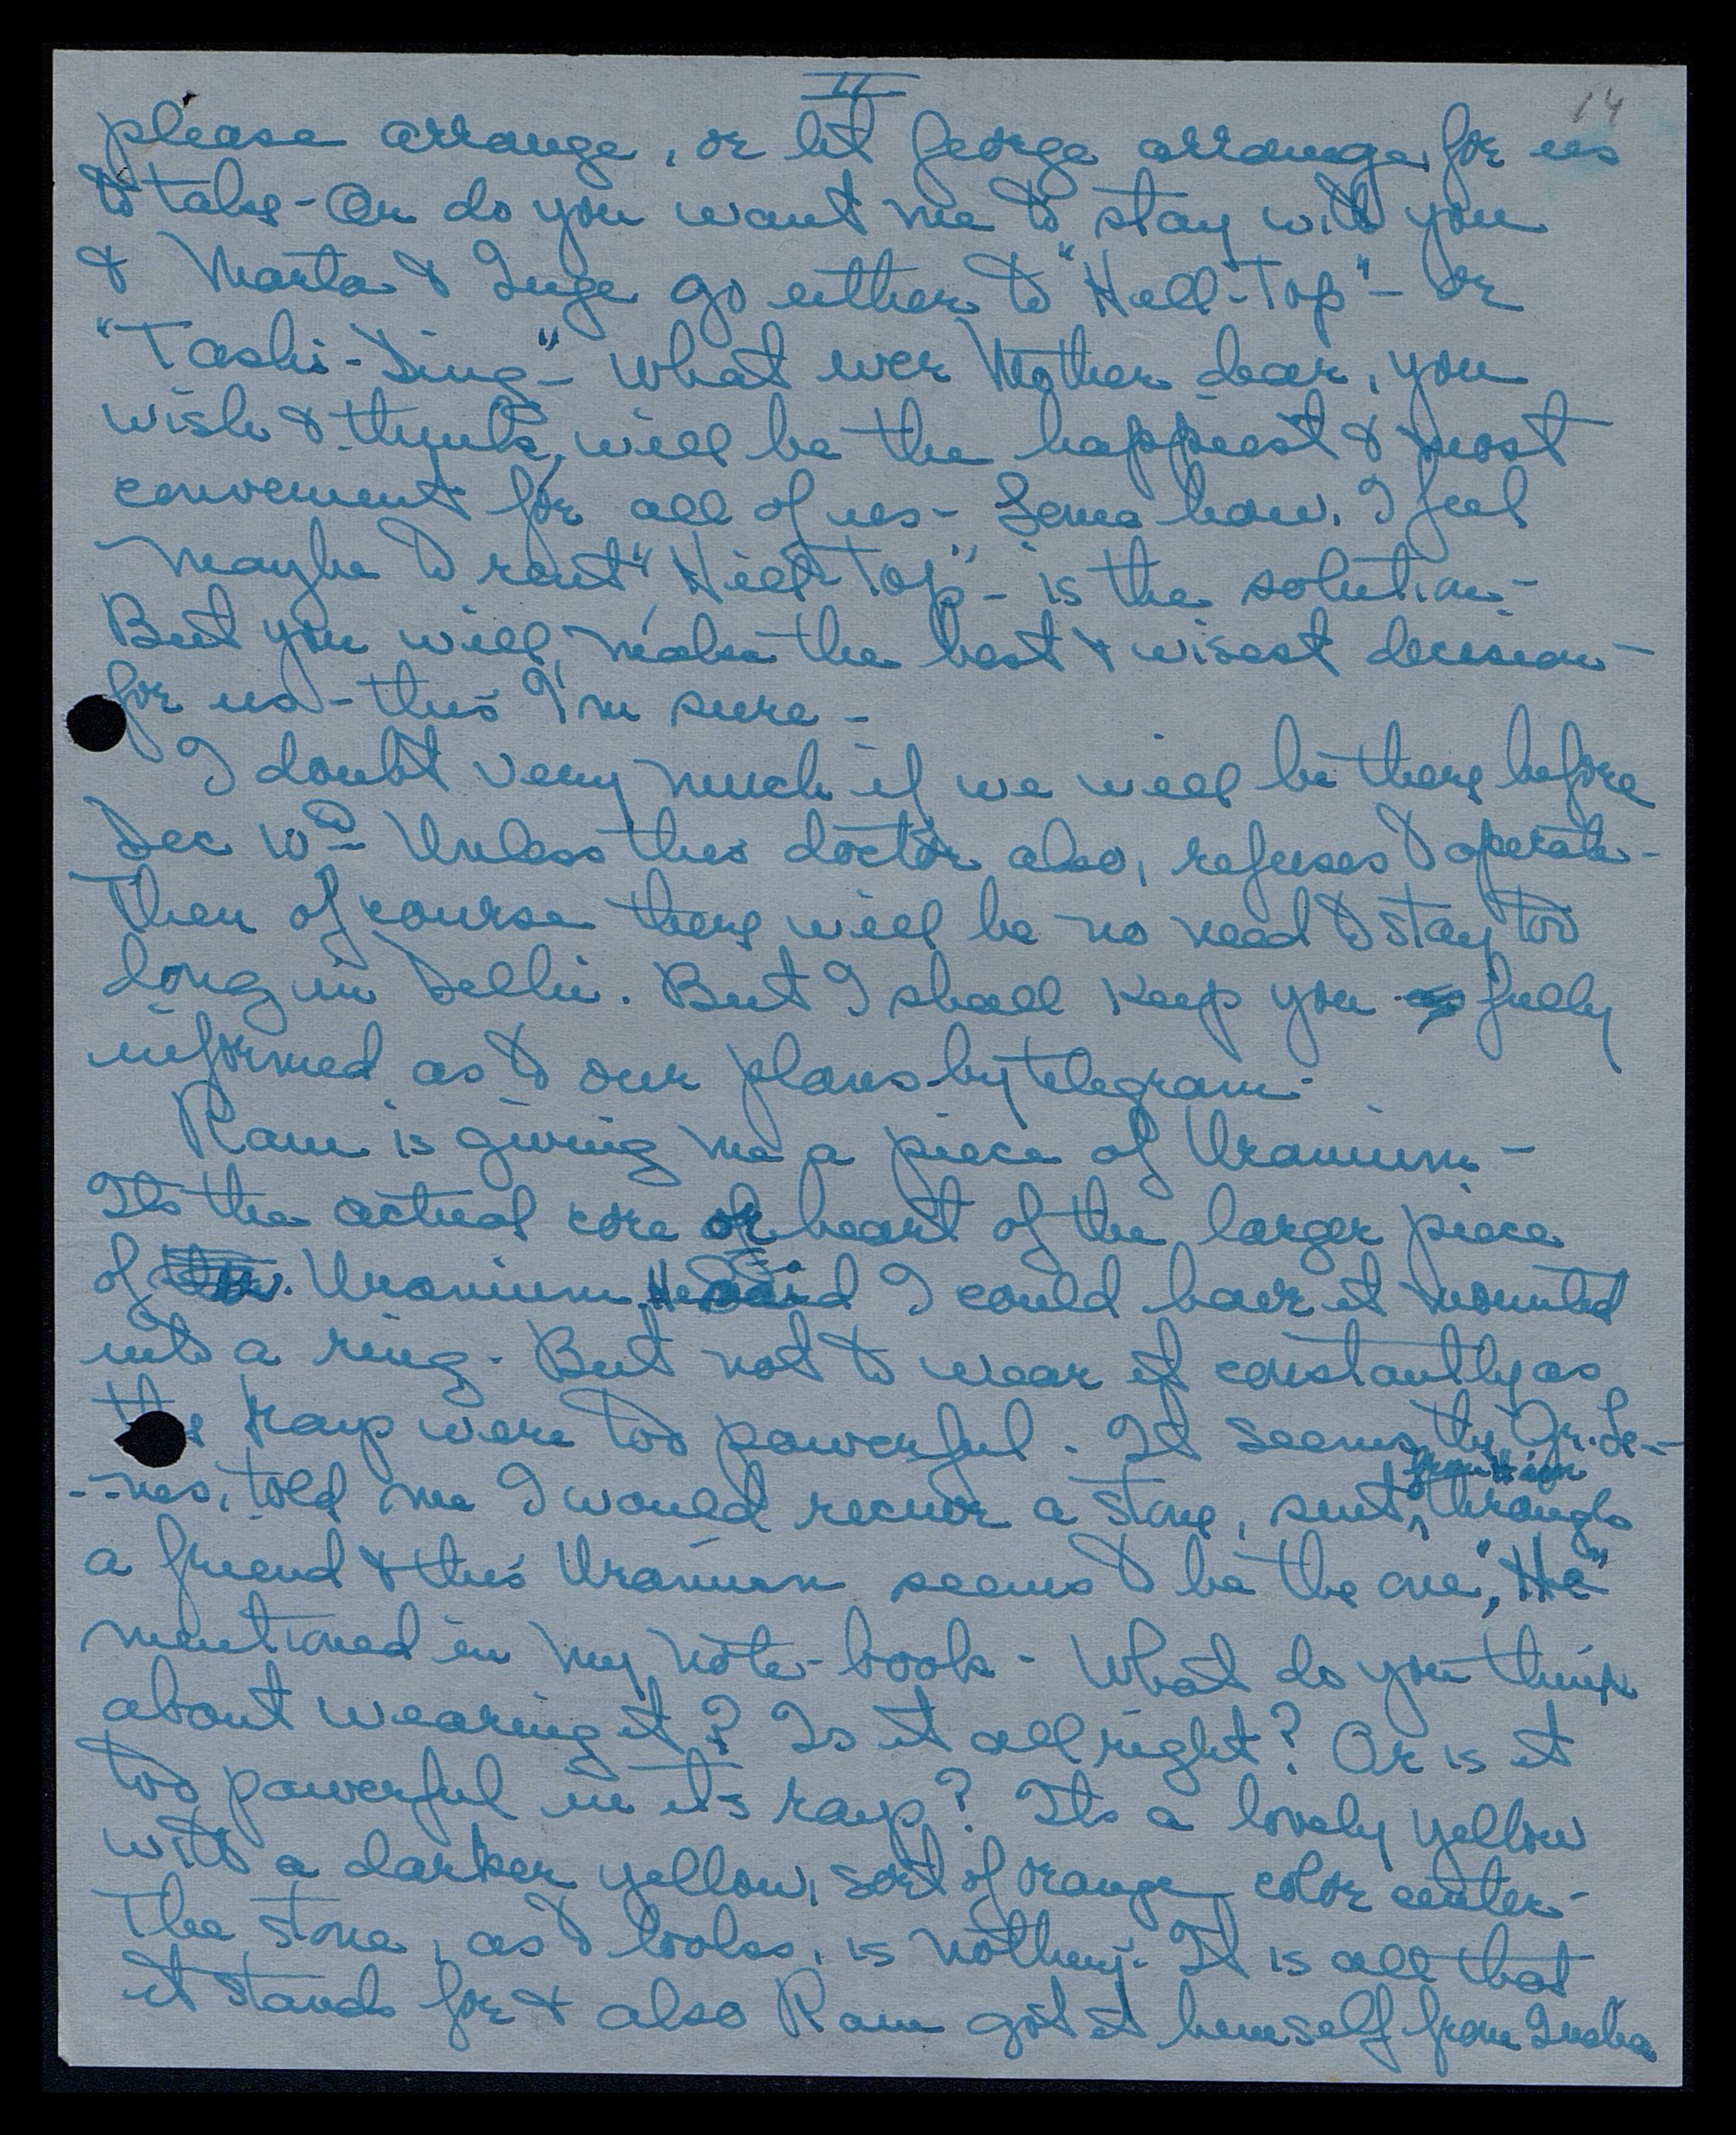 II
14
please arrange, or let George arrange, for us
to take - Or do you want me to stay with you
& Marta & Inge go either to "Hill-Top" - or
"Tashi-Ding" - What ever Mother dear, you
wish & think, will be the happiest & most
convenient for all of us - Some how, I feel
maybe to rent "Hill Top" - is the solution -
But you will, make the best & wisest decision -
for us - this I'm sure -
I doubt very much if we will be there before
Dec 10th - Unless this doctor also, refuses to operate -
Then of course there will be no need to stay too
long in Delhi. But I shall keep you fully
informed as to our plans by telegram.
Ram is giving me a piece of Uranium -
Its the actual core or heart of the larger piece
of Uranium. He said I could have it mounted
into a ring. But not to wear it constantly as
the rays were too powerful. It seems the Gr. Se-
--nes, told me I would receive a stone, sent, from Him through
a friend & this Uranium seems to be the one, "He"
mentioned in my note-book - What do you think
about wearing it? Is it all right? Or is it
too powerful in its rays? Its a lovely yellow
with a darker yellow, sort of orange color center -
The stone, as to looks, is nothing. It is all that
it stands for & also Ram got it himself from India